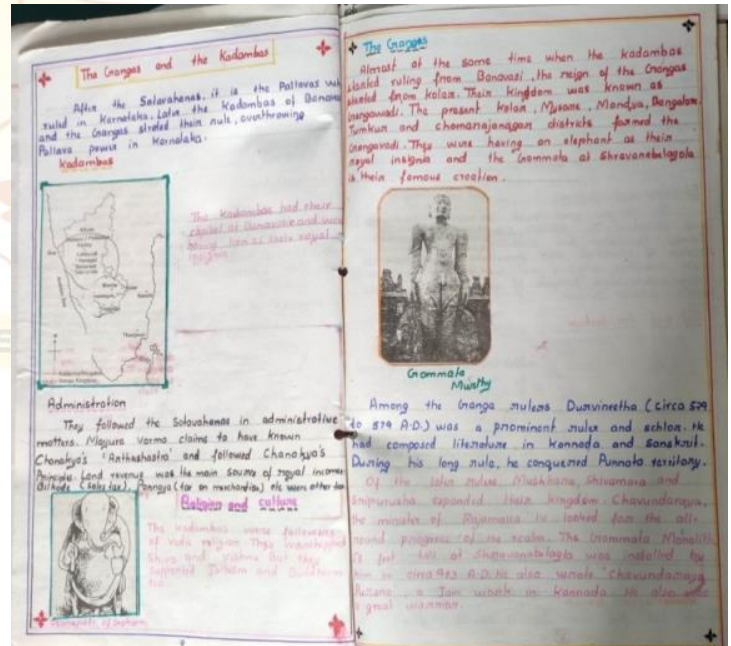 The Gangas and the Kadambas
After the Satavahanas, it is the Pallavas wh
ruled in Karnataka. Later the Kadambas of Banava
and the Gangas started their rule, overthrowing
Pallava power in Karnataka.
Kadambas
The Kadambas had their
capital at Banavasi and were
having lion as their royal
insignia
Administration
They followed the Satavahanas in administrative
matters. Mayura Varma claims to have known
Chanakya's 'Arthashastra' and followed Chanakya's
Principle. Land revenue was the main source of royal income.
(sales tax), Pannaya (tax on merchandise) etc were other
Religion and culture
The Kadambas were followers
of Vedic religion They worshipped
Shiva and Vishnu But they
supported Jainism and Buddhism
too.
The Gangas
Almost at the same time when the Kadambas
started ruling from Banavasi, the reign of the Gangas
started from Kolar. Their kingdom was known as
Gangavadi. The present Kolar, Mysore, Mandya, Bangalore,
Tumkur and chamarajanagar districts formed the
Gangavadi. They were having an elephant as their
royal insignia and the Gommata at Shravanabelagola
is their famous creation.
Gommata
Murthy
Among the Ganga rulers Durvineetha (circa 529
to 579 A.D.) was a prominent ruler and schlor. He
had composed literature in Kannada and Sanskrit.
During his long rule, he conquered Punnata territory.
Of the later rulers, Mushkara, Shivamara and
Sripurusha expanded their kingdom. Chavundaraya,
the minister of Rajamalla IV looked for the all-
round progress of the realm. The Gommata Monolith
58 feet tall at Shravanabelagla was installed by
him in circa 983 A.D. He also wrote 'Chavundaraya
Purana', a Jain work in Kannada He also was
a great warrior.